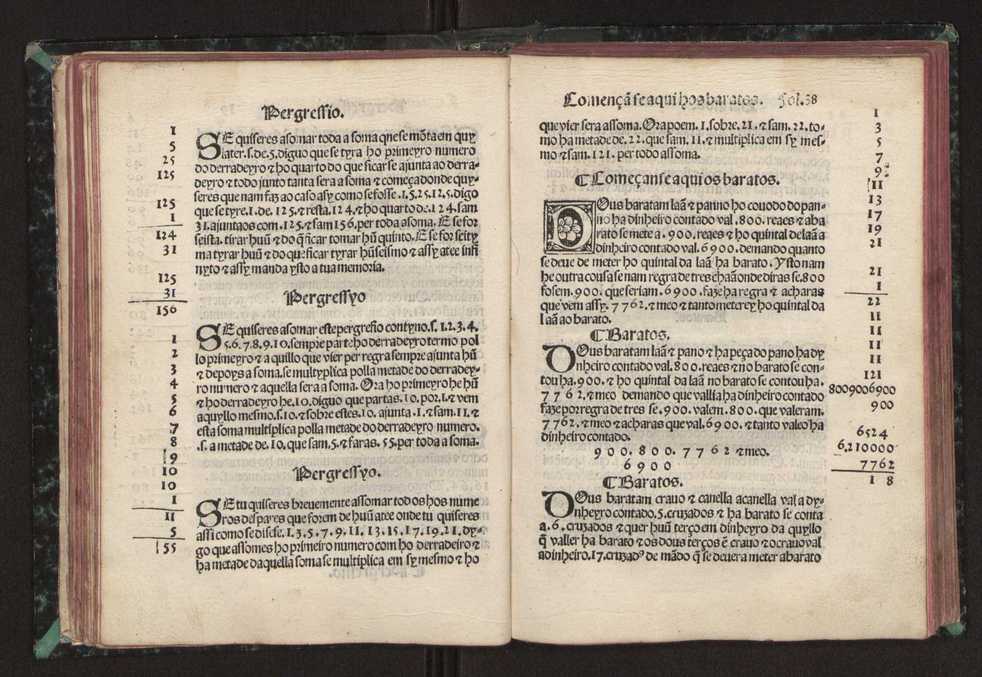 Pergressio.
SE quiseres asomar toda a soma que se mõta em quy
siater.s.de.5.diguo que se tyra ho primeyro numero
do derradeyro & ho quarto do que ficar se ajunta ao derra-
deyro & todo junto tanta sera a soma & começa donde quy-
seres que nam faz ao caso asy como se fosse.1.5.25.125.digo
que se tyre.1.de.125.& resta.124.& ho quarto de.124.sam
31.ajunta os com.125.& sam 156.per toda a soma. E se for
seista. tirar huũ & do q̃ ficar tomar hũ quinto. E se for seity
ma tyrar huũ & do que ficar tyrar hũ seismo & assy atee infi
nyto & assy manda ysto a tua memoria.
1
5
25
125
125
1
124
31
125
31
156
Pergressyo
SE quiseres asomar este pergresio contyno.s.1.2.3.4.
5.6.7.8.9.10.sempre parte ho derradeyro termo pol
lo primeyro & a quillo que vier per regra sempre ajunta hũ
& depoys a soma.se multyplica polla metade do derradey-
ro numero & aquella sera a soma. Ora ho primeyro he hũ
& ho derradeyro he.10.diguo que partas.10.por.1.& vem
a quyllo mesmo.s.10.& sobre estes.10.ajunta.1.& sam.11.&
esta soma multiplica polla metade do derradeyro numero.
.s.a metade de.10.que sam.5.& faras.55.per toda a soma.
1
2
3
4
5
6
7
8
9
10
10
1
11
5
55
Pergressyo.
SE tu quiseres brevemente assomar todos hos nume
ros des pares que forem de huũ atee onde tu quiseres
assi como se disese.1.3.5.7.9.11.13.15.17.19.21.dy-
go que assomes ho primeiro numero com ho derradeiro &
ha metade daquella soma se multiplica em sy mesmo & ho
Començã se aqui hos baratos. Fol.58
que vier sera assoma. Ora poem.1.sobre.21.& sam.22.to-
mo ha metade de.22.que sam.11.& multiplica em sy mes-
mo & sam.121.per todo assoma.
Començanse aqui os baratos.
DOus baratam laã & pano & ho covodo do pan-
no ha dinheiro contado val.800.reaes & aba
rato se mete a.900.reaes & ho quintal de laã a
dinheiro contado val.6900.demando quanto
se deue de meter ho quintal da laã ha barato. Ysto nam
he outra cousa se nam regra de tres chaã onde diras se.800
fosem.900.que seriam.6900.faze ha regra & acharas
que vem assy.7762.& meo & tanto meterey ho quintal da
laã ao barato.
Baratos.
DOus baratam laã & pano & ha peça do pano ha dy
nheiro contado val.800.reaes & no barato se con-
tou ha.900.& ho quintal da laã no barato se contou ha.
7762.& meo demando que vallia ha dinheiro contado
faze por regra de tres se.900.valem.800.que valeram.
7762.& meo & acharas que val.6900.& tanto valeo ha
dinheiro contado.
900.800.7762 & meo.
6900
Baratos.
DOus baratam crauo & canella a canella val a dy-
nheyro contado.5.cruzados & ha barato se conta
a.6.cruzados & quer huũ terço em dinheyro da quyllo
q̃ valler ha barato & os dous terços ẽ crauo & o crauo val
a dinheiro.17.cruzados de mãdo q̃ se deuera meter a barato
1
3
5
7
9
11
13
17
19
21
21
1
22
11
11
11
11
121
800906900
900
6524
6,210000
7762
1 8